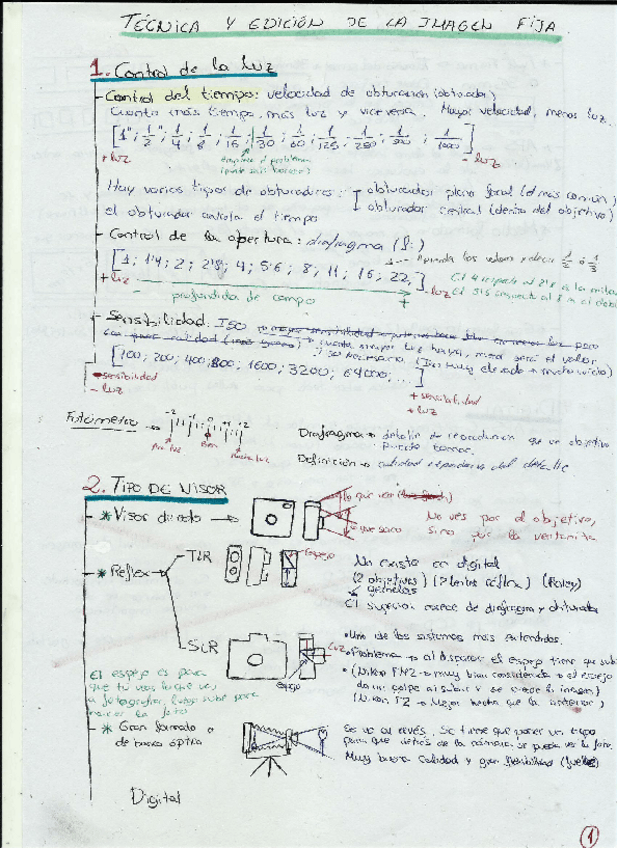 TÉCNICA Y EDICIÓN DE LA IMAGEN FIJA
1. Control de la Luz
- Control del tiempo: velocidad de obturación (obturador)
Cuanto más tiempo, más luz y viceversa. Mayor velocidad, menos luz.
[1"; 1/2"; 1/4; 1/8; 1/15; 1/30; 1/60; 1/125; 1/250; 1/500; 1/1000]
+ luz
- luz
Hay varios tipos de obturadores:
obturador plano focal (el más común)
el obturador controla el tiempo
obturador central (dentro del objetivo)
- Control de la apertura: diafragma (f:)
[1; 1'4; 2; 2'8; 4; 5'6; 8; 11; 16; 22]
1/2 ó 1/3
+ luz
- luz
profundidad de campo
El 4 respecto al 2'8 es la mitad
El 5'6 respecto al 8 es el doble
- Sensibilidad. ISO
[100; 200; 400; 800; 1600; 3200; 64000; ...]
- sensibilidad
- luz
+ sensibilidad
+ luz
Fotómetro →
-2 -1 0 +1 +2
Bien
Mucha luz
Diafragma →
de reproducción que un objetivo
puede tener.
Definición → calidad del detalle
2. TIPO DE VISOR
- * Visor directo →
lo que ves
lo que sale
No ves por el objetivo,
sino por la ventanita
- * Réflex
TLR
espejo
No existe en digital
(2 objetivos) (2 lentes réflex)
gemelas
El superior carece de diafragma y obturador
SLR
luz
espejo
• Uno de los sistemas más extendidos.
• Problema → al disparar el espejo tiene que subir
• (Nikon FM2 → muy bien considerada → el espejo
da un golpe al subir y se mueve la imagen)
(Nikon F2 → Mejor que la anterior)
El espejo es para
que tú veas lo que vas
a fotografiar, luego sube para
hacer la foto
- * Gran formato o
de banco óptico
Se ve al revés. Se tiene que poner un trapo
para que detrás de la cámara se pueda ver la foto.
Muy buena calidad y gran flexibilidad (fuelle)
Digital
1